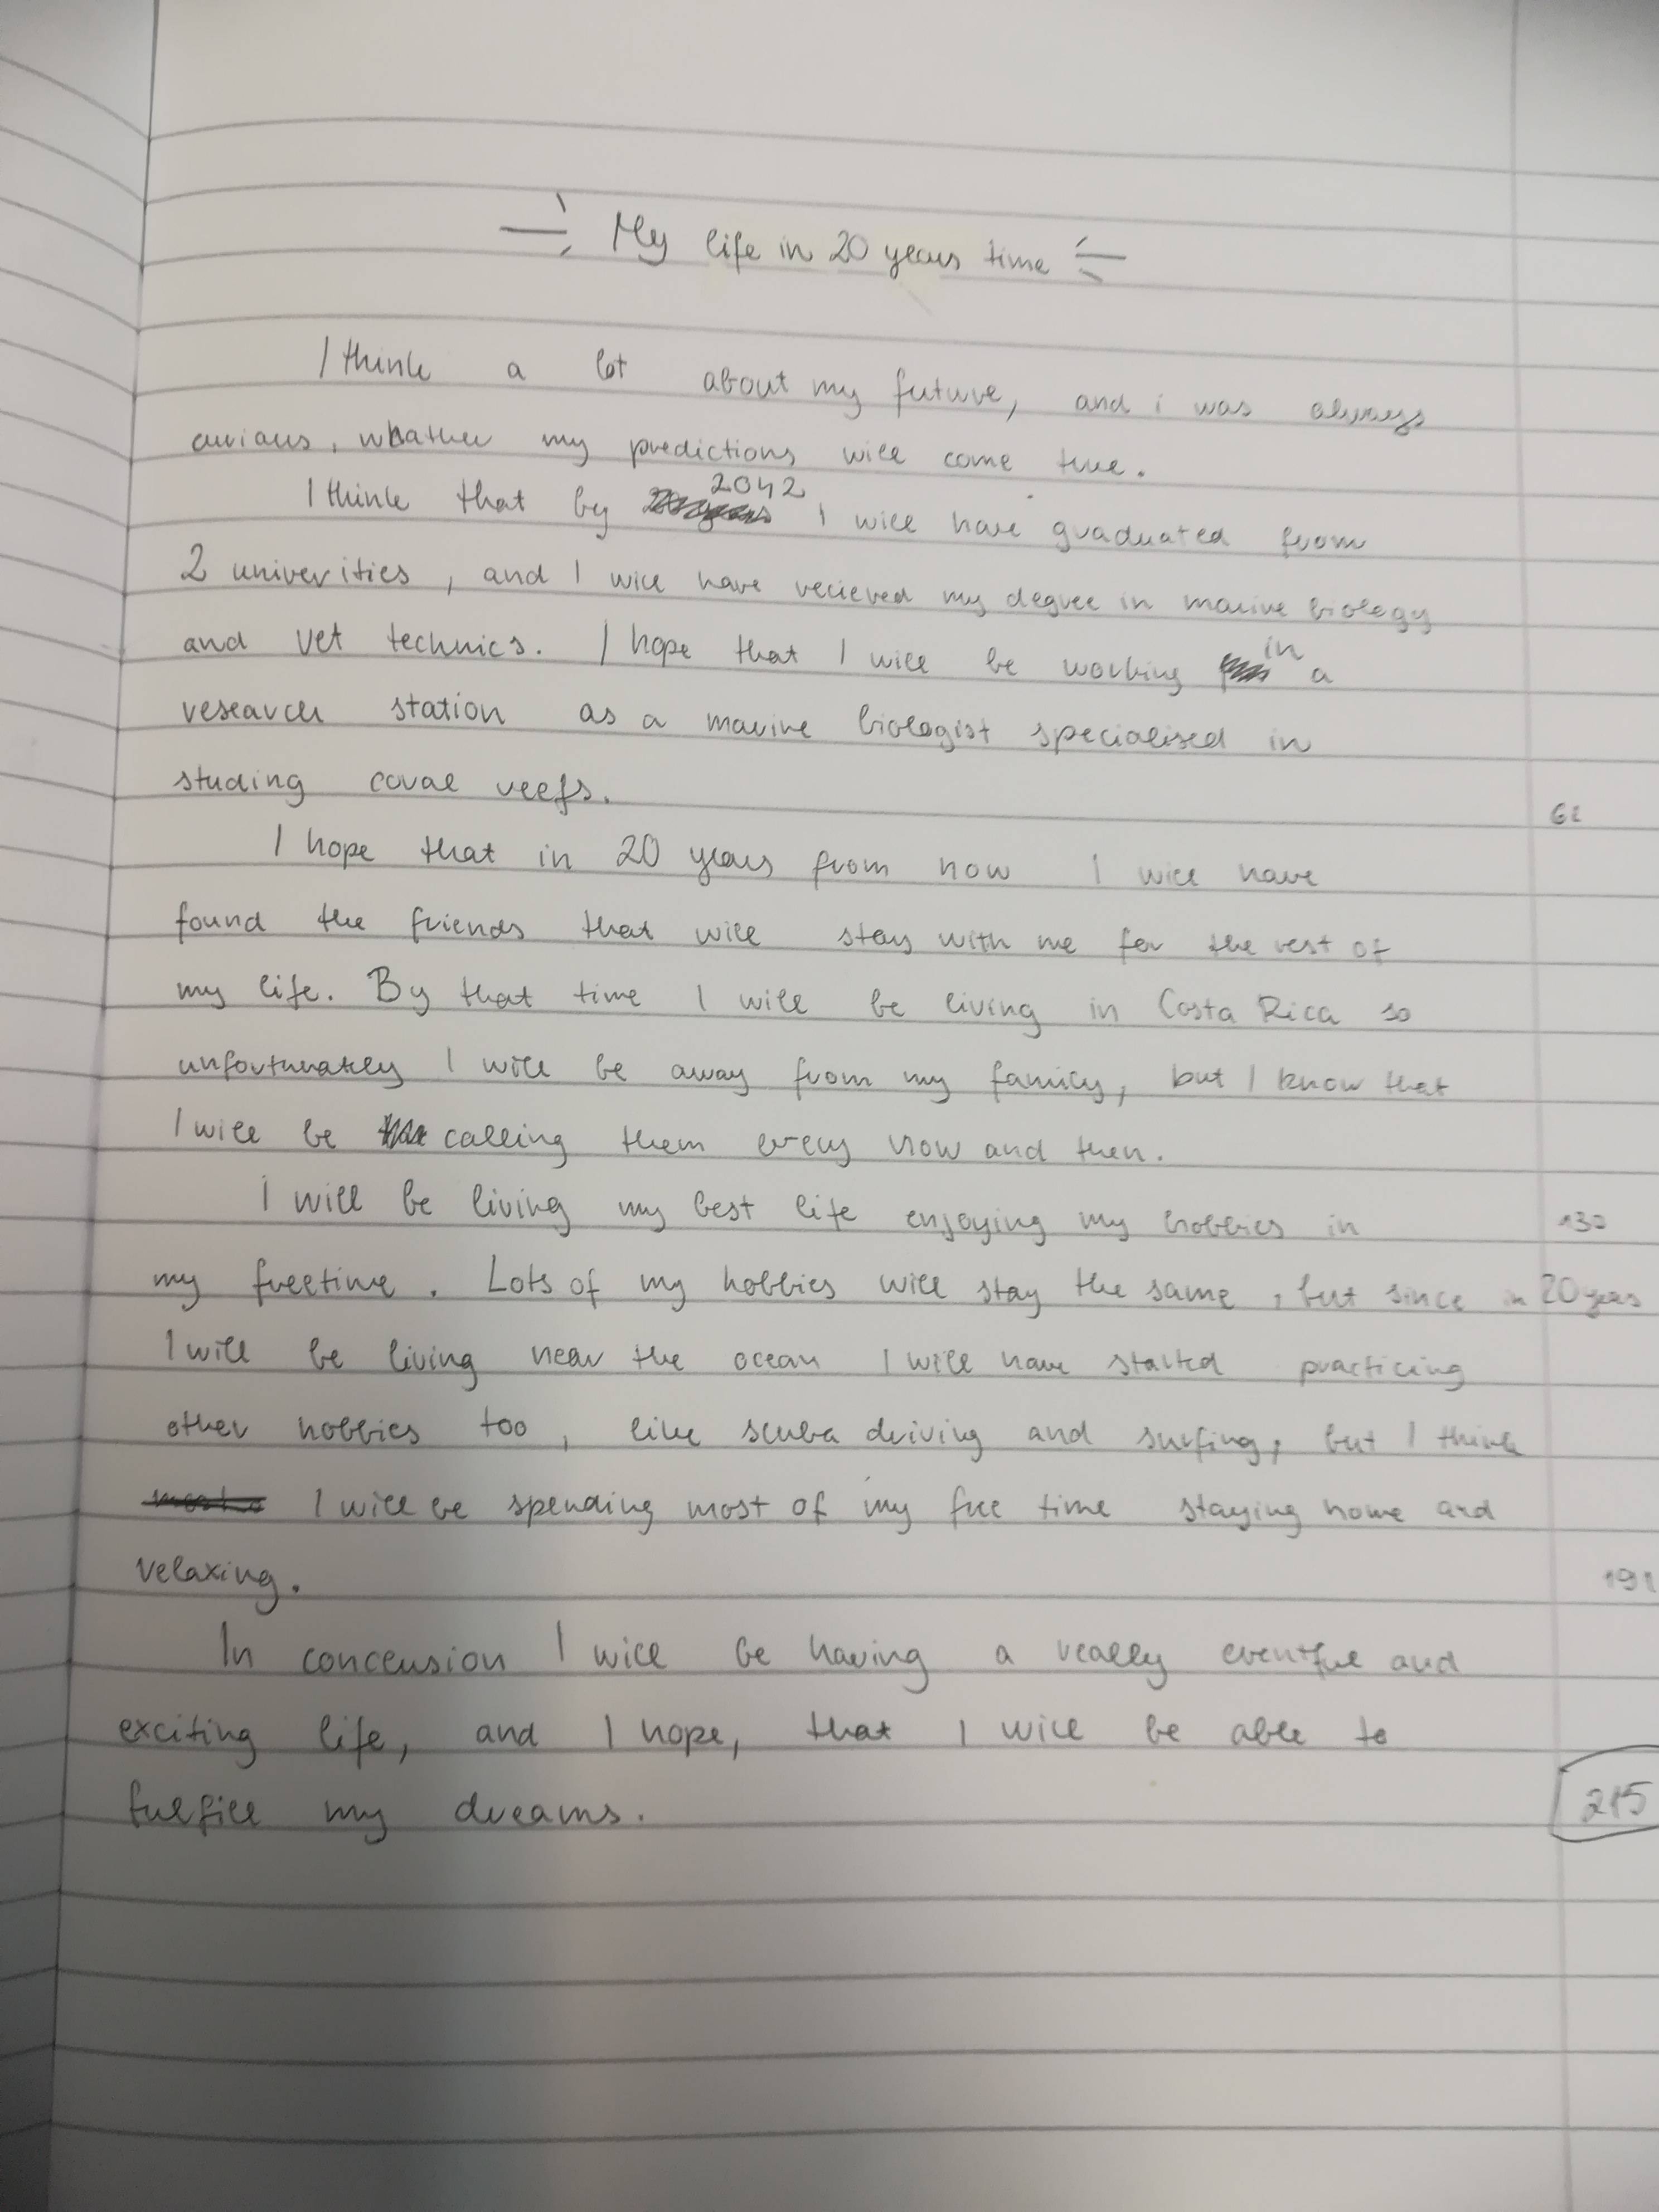 My life in 20 years time
I think a lot about my future, and i was always
curious, whather my predictions will come true.
I think that by 2042 I will have graduated from
2 univerities, and I will have recieved my degree in marine biology
and vet technics. I hope that I will be working in a
research station as a marine biologist specialised in
studing coral reefs.
62
I hope that in 20 years from now I will have
found the friends that will stay with me for the rest of
my life. By that time I will be living in Costa Rica so
unfortunately I will be away from my family, but I know that
I will be calling them every now and then.
I will be living my best life enjoying my hobbies in
130
my freetime. Lots of my hobbies will stay the same, but since in 20 years
I will be living near the ocean I will have started practicing
other hobbies too, like scuba driving and surfing, but I think
I will be spending most of my free time staying home and
relaxing.
191
In conclusion I will be having a really eventful and
exciting life, and I hope, that I will be able to
fulfill my dreams.
215